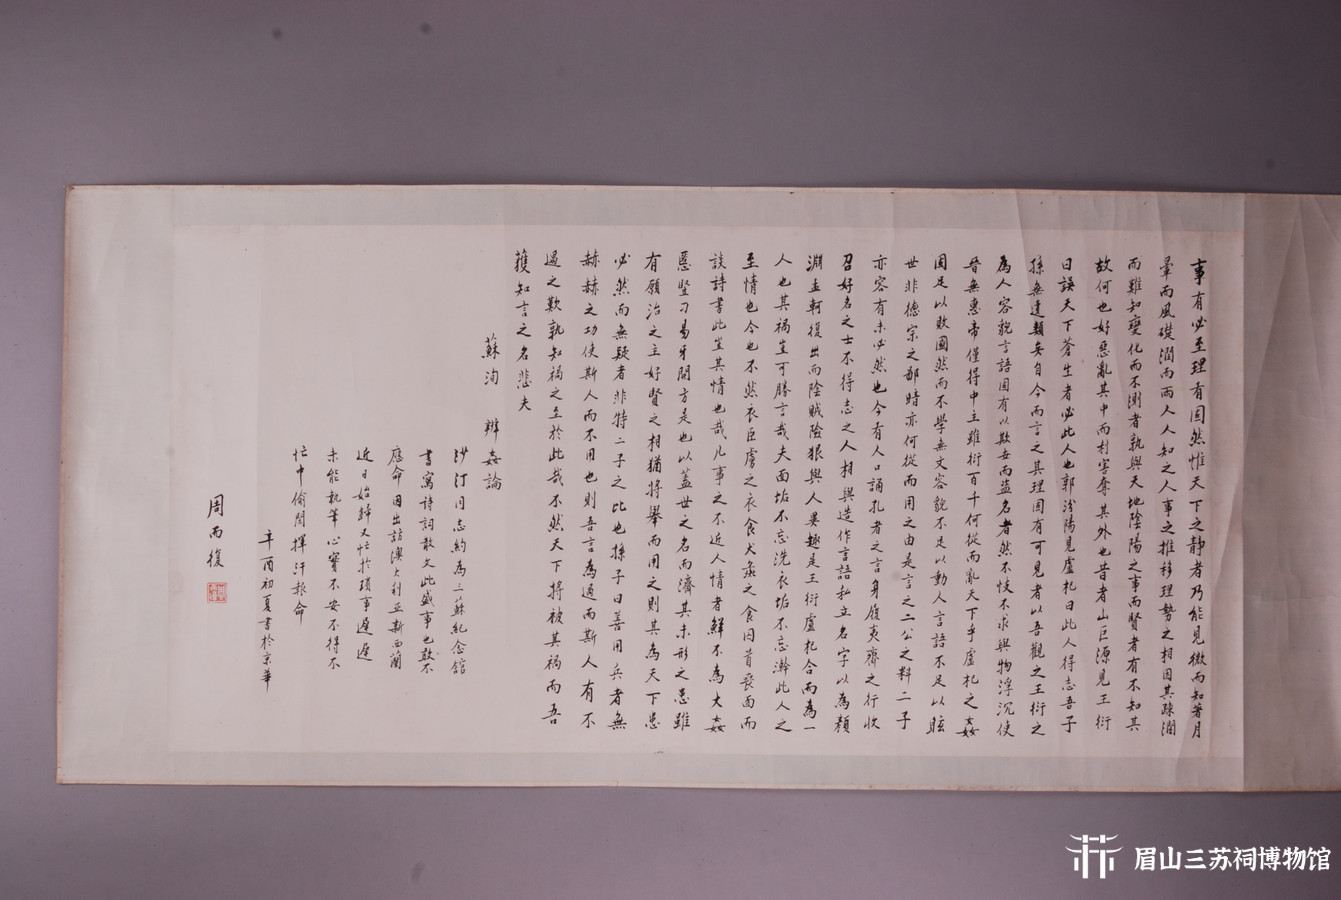 事有必至理有固然惟天下之静者乃能見微而知著月
暈而風礎潤而雨人人知之人事之推移理勢之相因其疎濶
而難知變化而不測者孰與天地陰陽之事而賢者有不知其
故何也好惡亂其中而利害奪其外也昔者山巨源見王衍
曰誤天下蒼生者必此人也郭汾陽見盧杞曰此人得志吾子
孫無遺類矣自今而言之其理固有可見者以吾觀之王衍之
為人容貌言語固有以欺世而盜名者然不忮不求與物浮沉使
晉無惠帝僅得中主雖衍百千何從而亂天下乎盧杞之姦
固足以敗國然而不學無文容貌不足以動人言語不足以眩
世非德宗之鄙暗亦何從而用之由是言之二公之料二子
亦容有未必然也今有人口誦孔老之言身履夷齊之行收
召好名之士不得志之人相與造作言語私立名字以為顏
淵孟軻復出而陰賊險狠與人異趣是王衍盧杞合而為一
人也其禍豈可勝言哉夫面垢不忘洗衣垢不忘澣此人之
至情也今也不然衣臣虜之衣食犬彘之食囚首喪面而
談詩書此豈其情也哉凡事之不近人情者鮮不為大姦
慝豎刁易牙開方是也以蓋世之名而濟其未形之患雖
有願治之主好賢之相猶將舉而用之則其為天下患
必然而無疑者非特二子之比也孫子曰善用兵者無
赫赫之功使斯人而不用也則吾言為過而斯人有不
遇之歎孰知禍之至於此哉不然天下將被其禍而吾
獲知言之名悲夫
蘇洵 辨姦論
沙汀同志約為三蘇紀念館
書寫詩詞散文此盛事也敢不
應命因出訪澳大利亞新西蘭
近日始歸又忙於瑣事遲遲
未能執筆心實不安不得不
忙中偷閒揮汗報命
辛酉初夏書於京華
周而復
眉山三苏祠博物馆